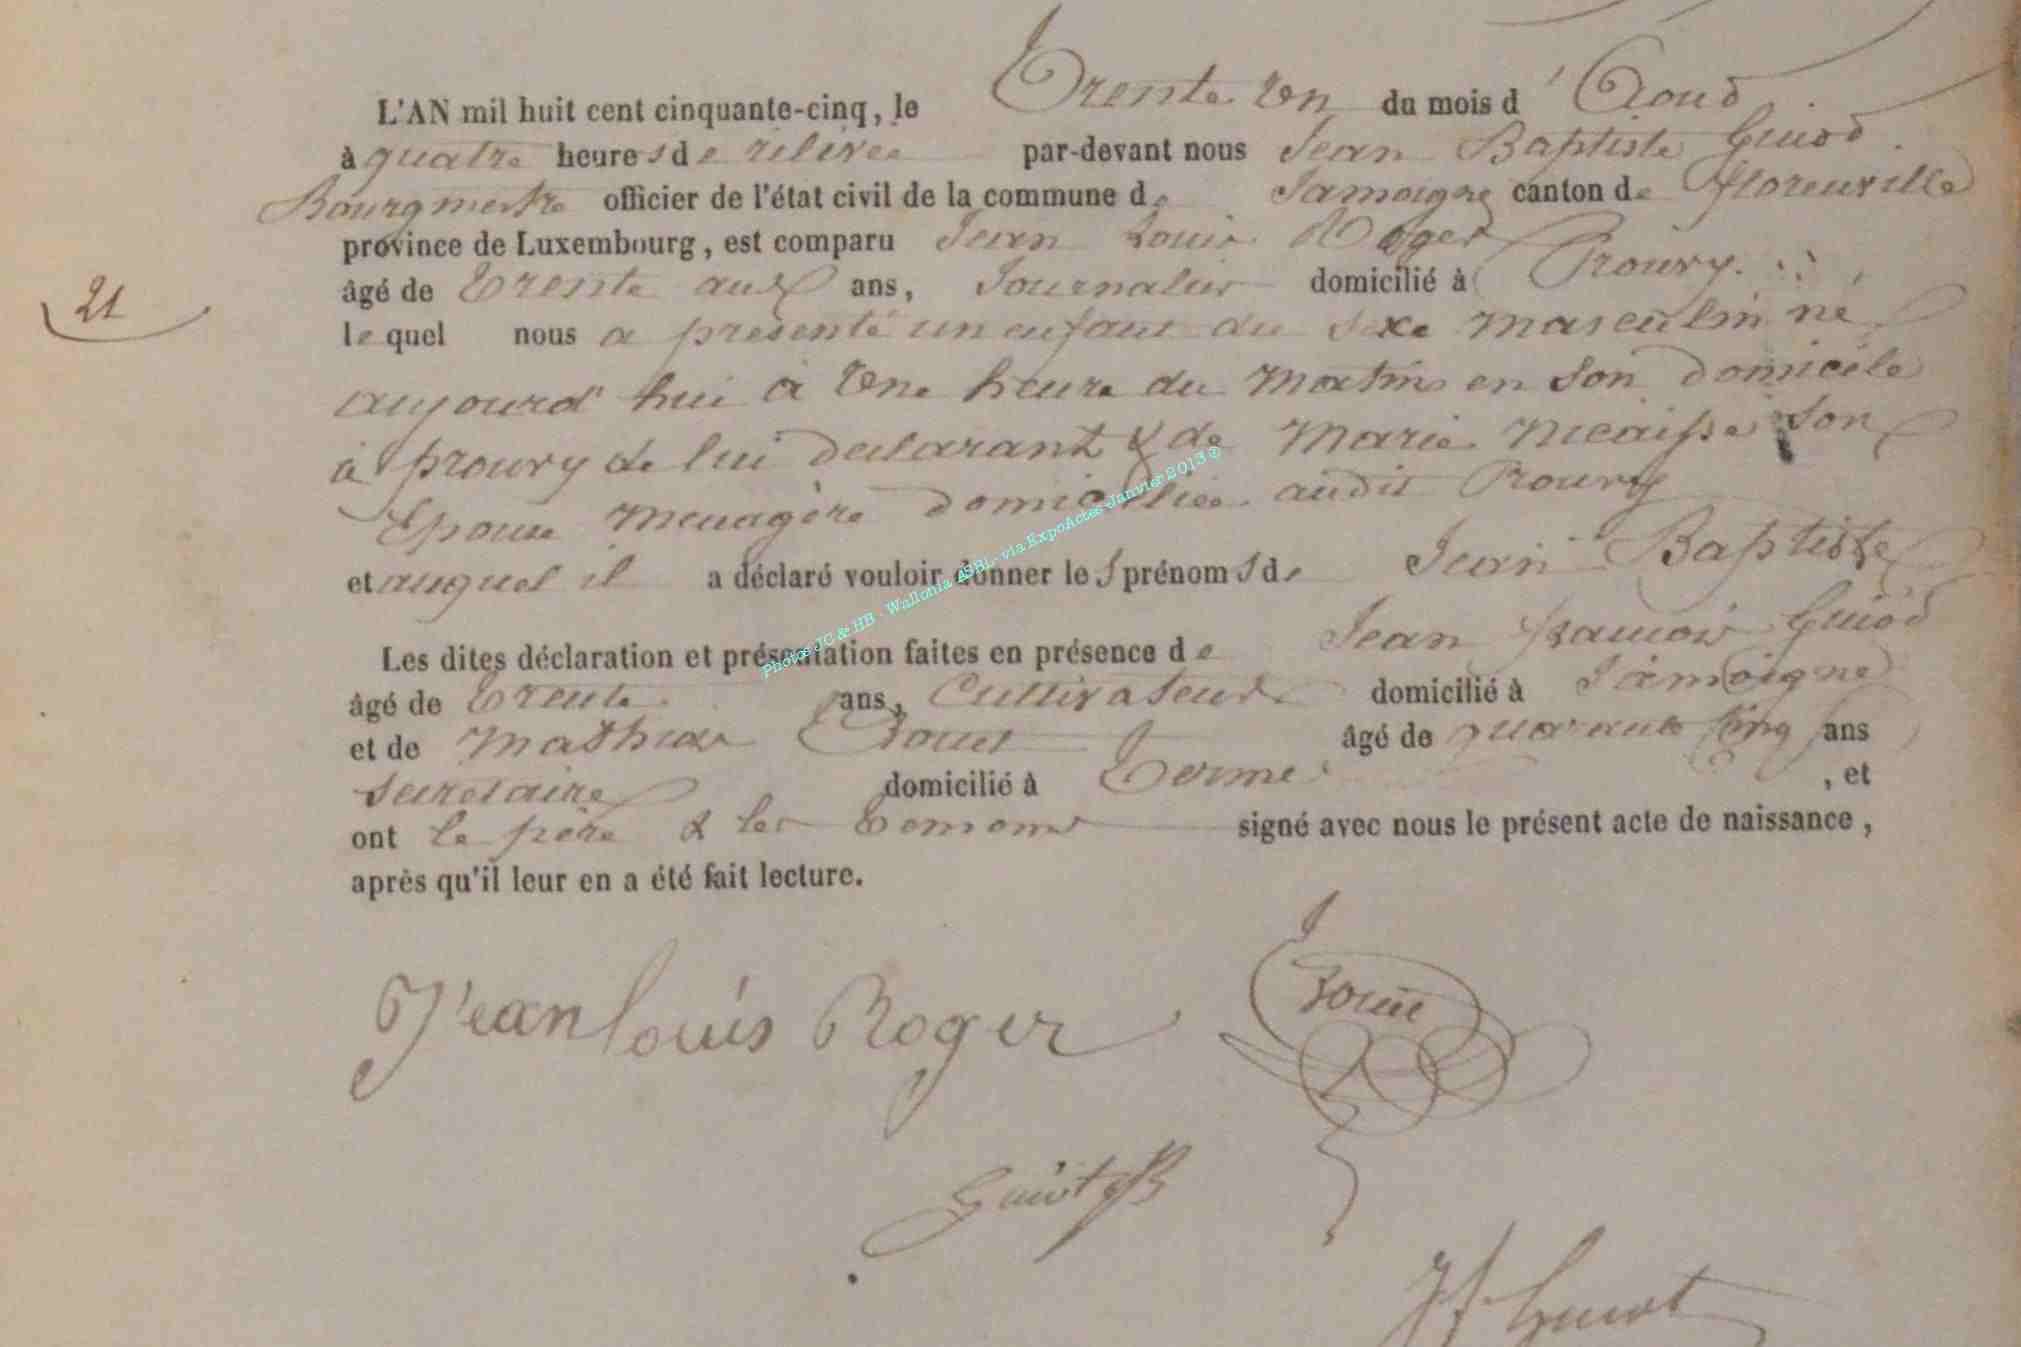 L'AN mil huit cent cinquante-cinq, le Trente Un du mois d' Aout
à quatre heures de relevée par-devant nous Jean Baptiste Guiot
Bourgmestre officier de l'état civil de la commune de Jamoigne canton de florenville
province de Luxembourg, est comparu Jean Louis Roger
âgé de Trente ans, Journalier domicilié à Prouvy.
21
lequel nous a présenté un enfant du sexe masculin né
aujourd'hui à Une heure du Matin en Son Domicile
à prouvy de lui declarant & de Marie Son
Epouse Menagère domiciliée audit Prouvy
et auquel il a déclaré vouloir donner les prénoms de Jean Baptiste
Les dites déclaration et présentation faites en présence de Jean francois Guiot
âgé de Trente ans, Cultivateur domicilié à Jamoigne
et de Mathieu âgé de quarante Cinq ans
Secretaire domicilié à Termes, et
ont le père & les Temoins signé avec nous le présent acte de naissance,
après qu'il leur en a été fait lecture.
Photos JC & HB - Wallonia ASBL - via ExpoActes Janvier 2013 ©
Jean louis Roger
Guiot JB
JF Guiot